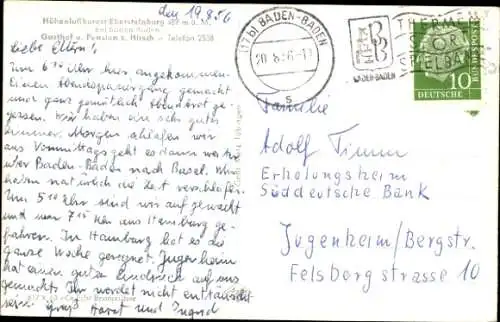 den 19.8.56
Höhenluftkurort Ebersteinburg 489 m ü. M.
bei Baden-Baden
Gasthof u. Pension z. Hirsch - Telefon 2538
Liebe Eltern!
Um 6 Uhr hier angekommen.
Einen Abendspaziergang gemacht
und ganz gemütlich Abendbrot ge-
gessen. Wir haben ein sehr gutes
Zimmer. Morgen schlafen wir
aus. Vormittags geht es dann weiter
über Baden-Baden nach Basel. Wir
haben natürlich die Zeit verschlafen.
Um 5 Uhr sind wir aufgewacht
und um 7 Uhr aus Hamburg ge-
fahren. In Hamburg hat es die
ganze Woche geregnet. Jugenheim
hat einen guten Eindruck auf uns
gemacht. Ihr werdet nicht enttäuscht
sein. Gruß Horst und Ingrid
(17b) BADEN-BADEN
20.8.56
s
BADEN-BADEN
THERME
SPORT
SPIELBANK
DEUTSCHE
BUNDESPOST
10
Familie
Adolf Timm
Erholungsheim
Süddeutsche Bank
Jugenheim/Bergstr.
Felsbergstrasse 10